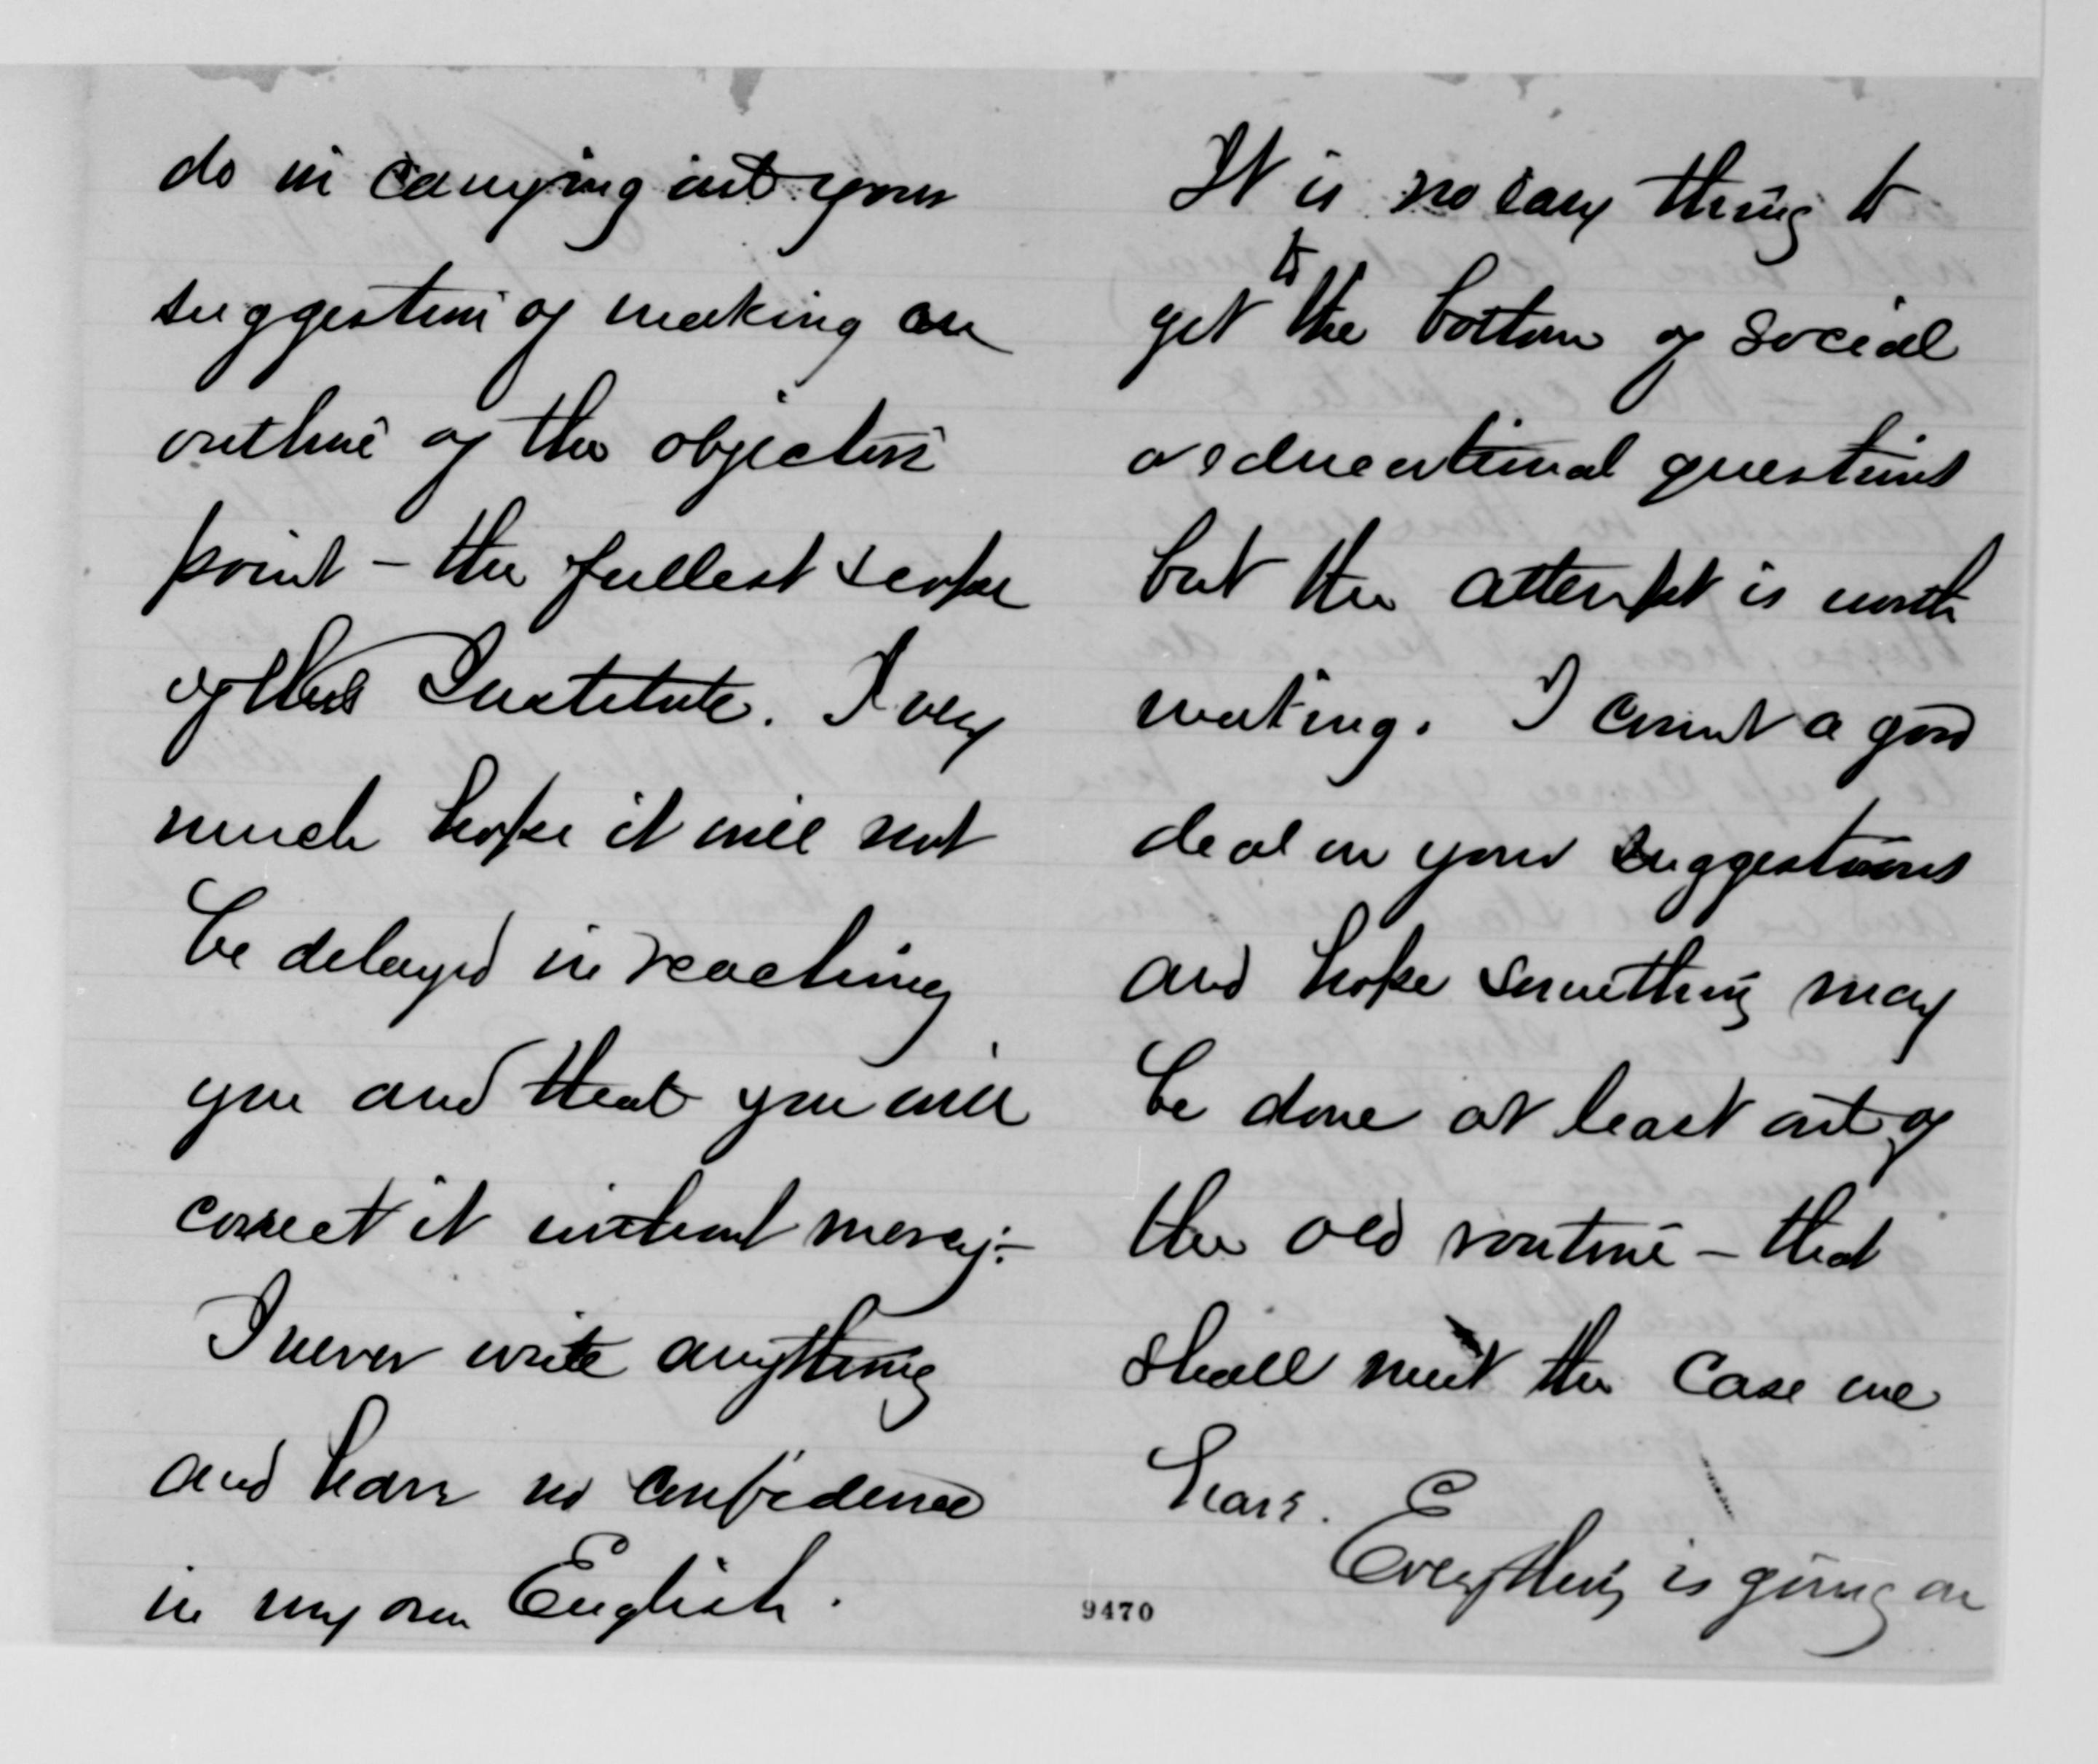 do in carrying out your
suggestion of making an
outline of the objective
point - the fullest scope
of this Institute. I very
much hope it will not
be delayed in reaching
you and that you will
correct it without mercy.-
I never write anything
and have no confidence
in my own English.
It is no easy thing to
get to the bottom of social
or educational questions
but the attempt is worth
making. I count a good
deal on your suggestions
and hope something may
be done at least out of
the old routine - that
shall meet the case we
have.
Everything is going on
9470